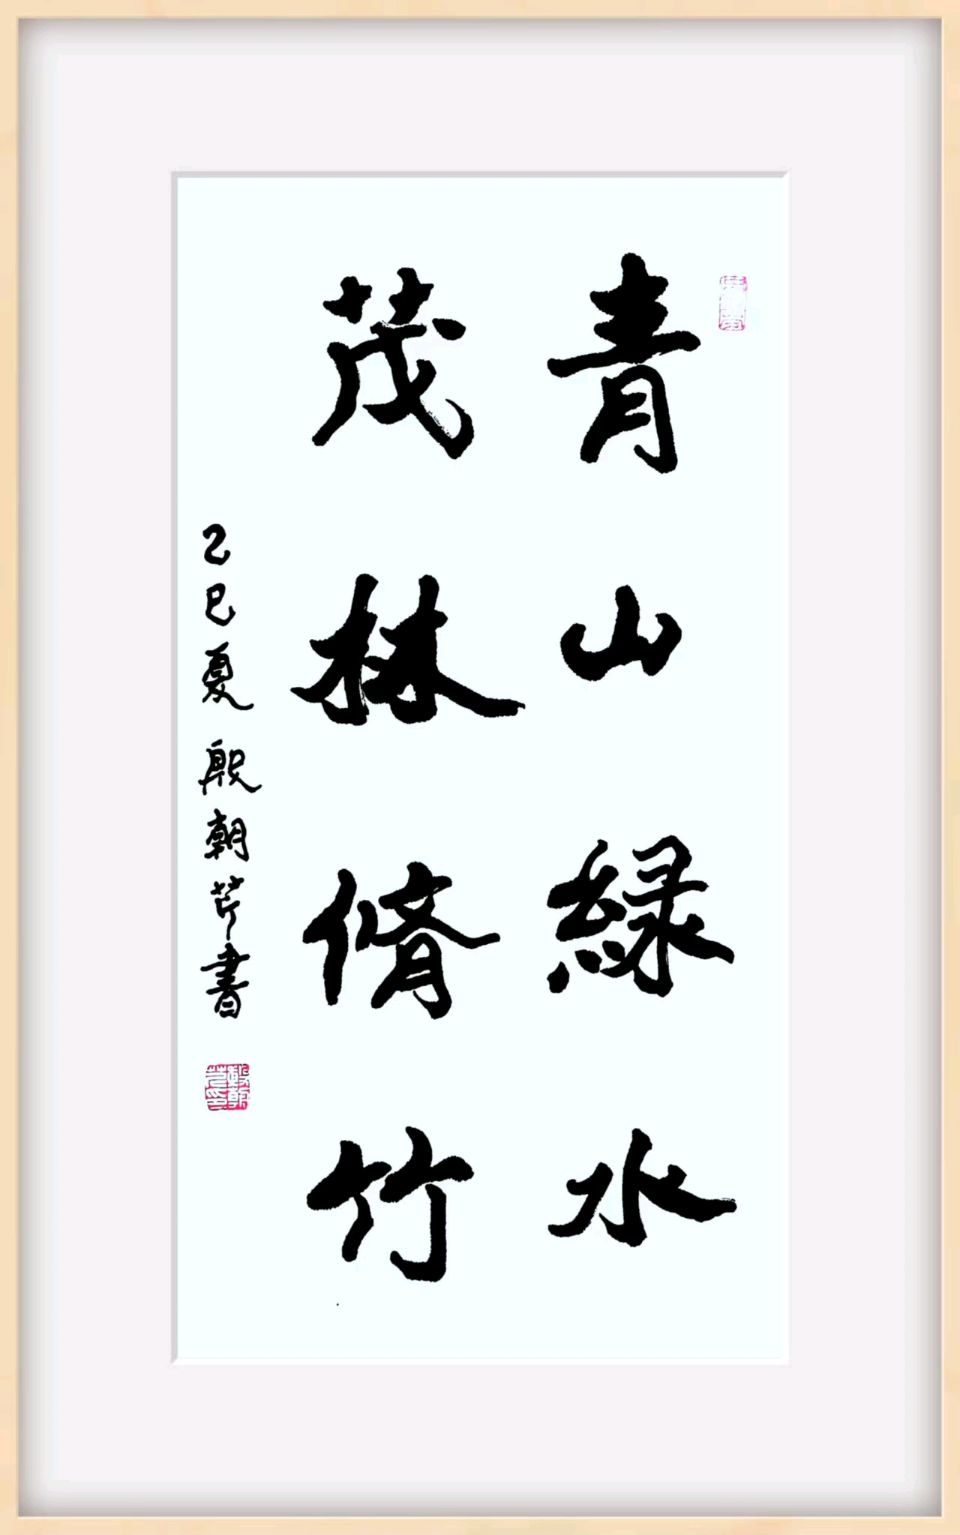 青山緑水
茂林脩竹
乙巳夏 殷朝芹書